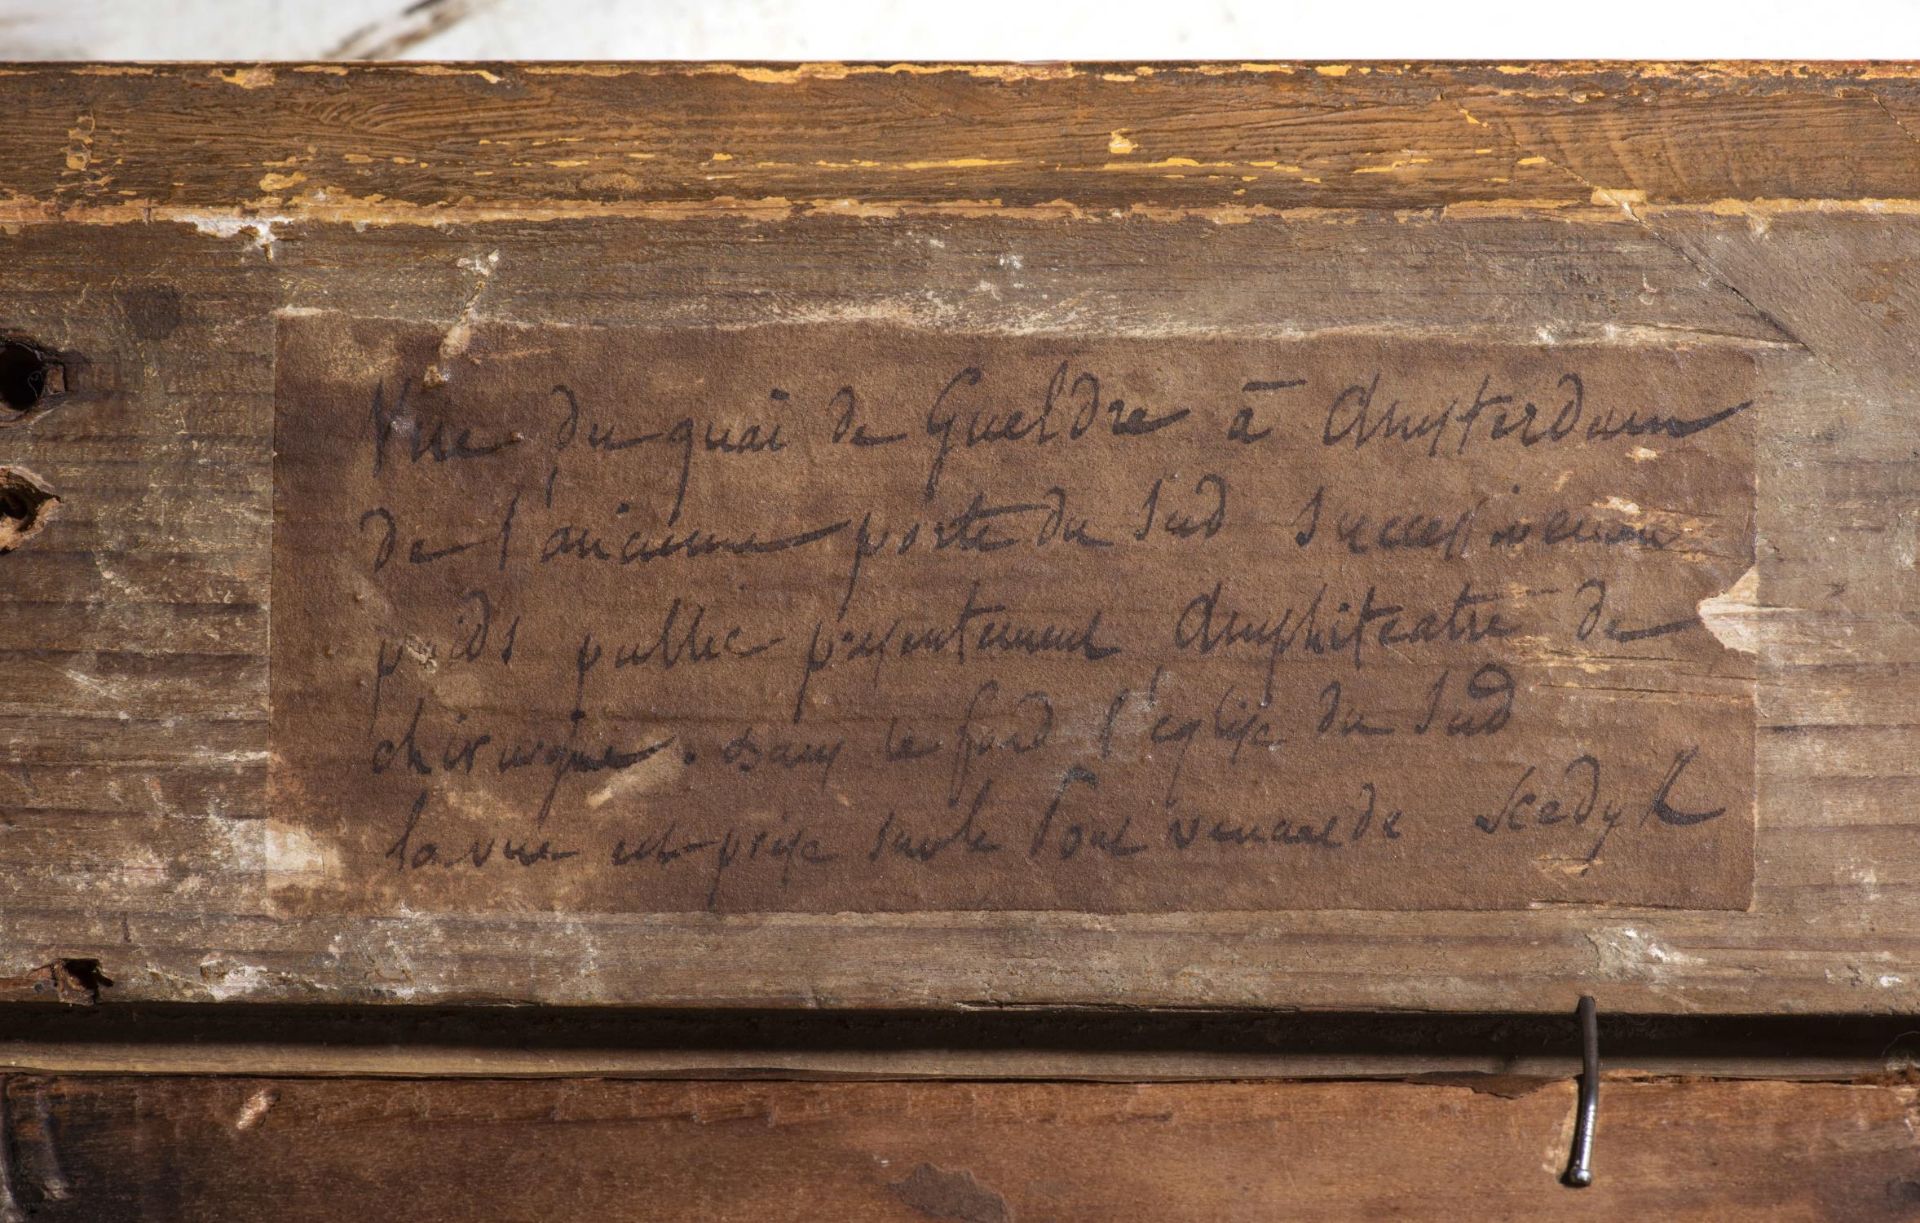 Vue du quai de Gueldre à Amsterdam
de l'ancienne porte du Sud successivement
poids public presentement Amphiteatre de
chirurgie. dans le fond l'église du Sud
la vue est prise sur le Pont venant de Seedyk